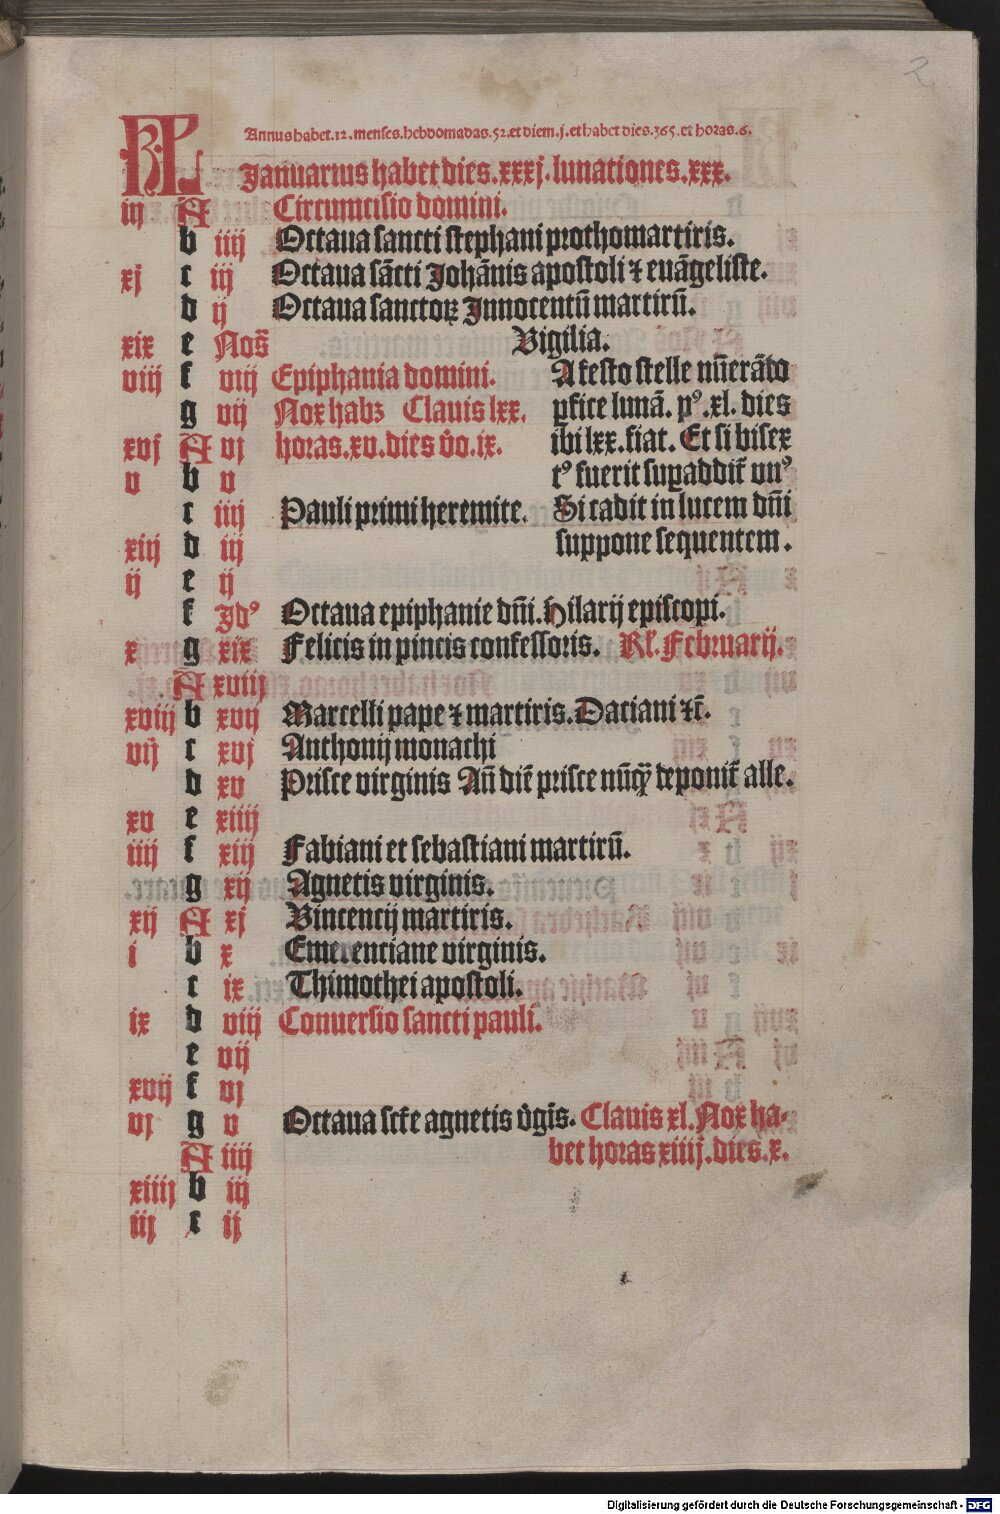 2
KL Annus habet .12. menses. hebdomadas .52. et diem .j. et habet dies .365. et horas .6.
Januarius habet dies .xxxj. lunationes .xxx.
iij A Circumcisio domini.
b iiij Octaua sancti stephani prothomartiris.
xj c iij Octaua sācti Johānis apostoli ⁊ euāgeliste.
d ij Octaua sanctoꝝ Innocentū martirū.
xix e Noñ Vigilia.
viij f viij Epiphania domini. A festo stelle nūerādo
g vij Nox habꝫ Clauis lxx. ꝑfice lunā. pꝰ .xl. dies
xvj A vj horas .xv. dies v̄o .ix. ibi lxx. fiat. Et si bisex
v b v tꝰ fuerit suꝑaddit̄ vnꝰ
c iiij Pauli primi heremite. Si cadit in lucem dn̄i
xiij d iij suppone sequentem.
ij e ij
f Idꝰ Octaua epiphanie dn̄i. Hilarij episcopi.
x g xix Felicis in pincis confessoris. Kl. Februarij.
A xviij
xviij b xvij Marcelli pape ⁊ martiris. Daciani ⁊c̄.
vij c xvj Anthonij monachi
d xv Prisce virginis Añ diē prisce nūꝙ deponit̄ alle.
xv e xiiij
iiij f xiij Fabiani et sebastiani martirū.
g xij Agnetis virginis.
xij A xj Vincencij martiris.
i b x Emerenciane virginis.
c ix Thimothei apostoli.
ix d viij Conuersio sancti pauli.
e vij
xvij f vj
vj g v Octaua sct̄e agnetis v̄gīs. Clauis xl. Nox ha-
A iiij bet horas xiiij. dies .x.
xiiij b iij
iij c ij
Digitalisierung gefördert durch die Deutsche Forschungsgemeinschaft - DFG